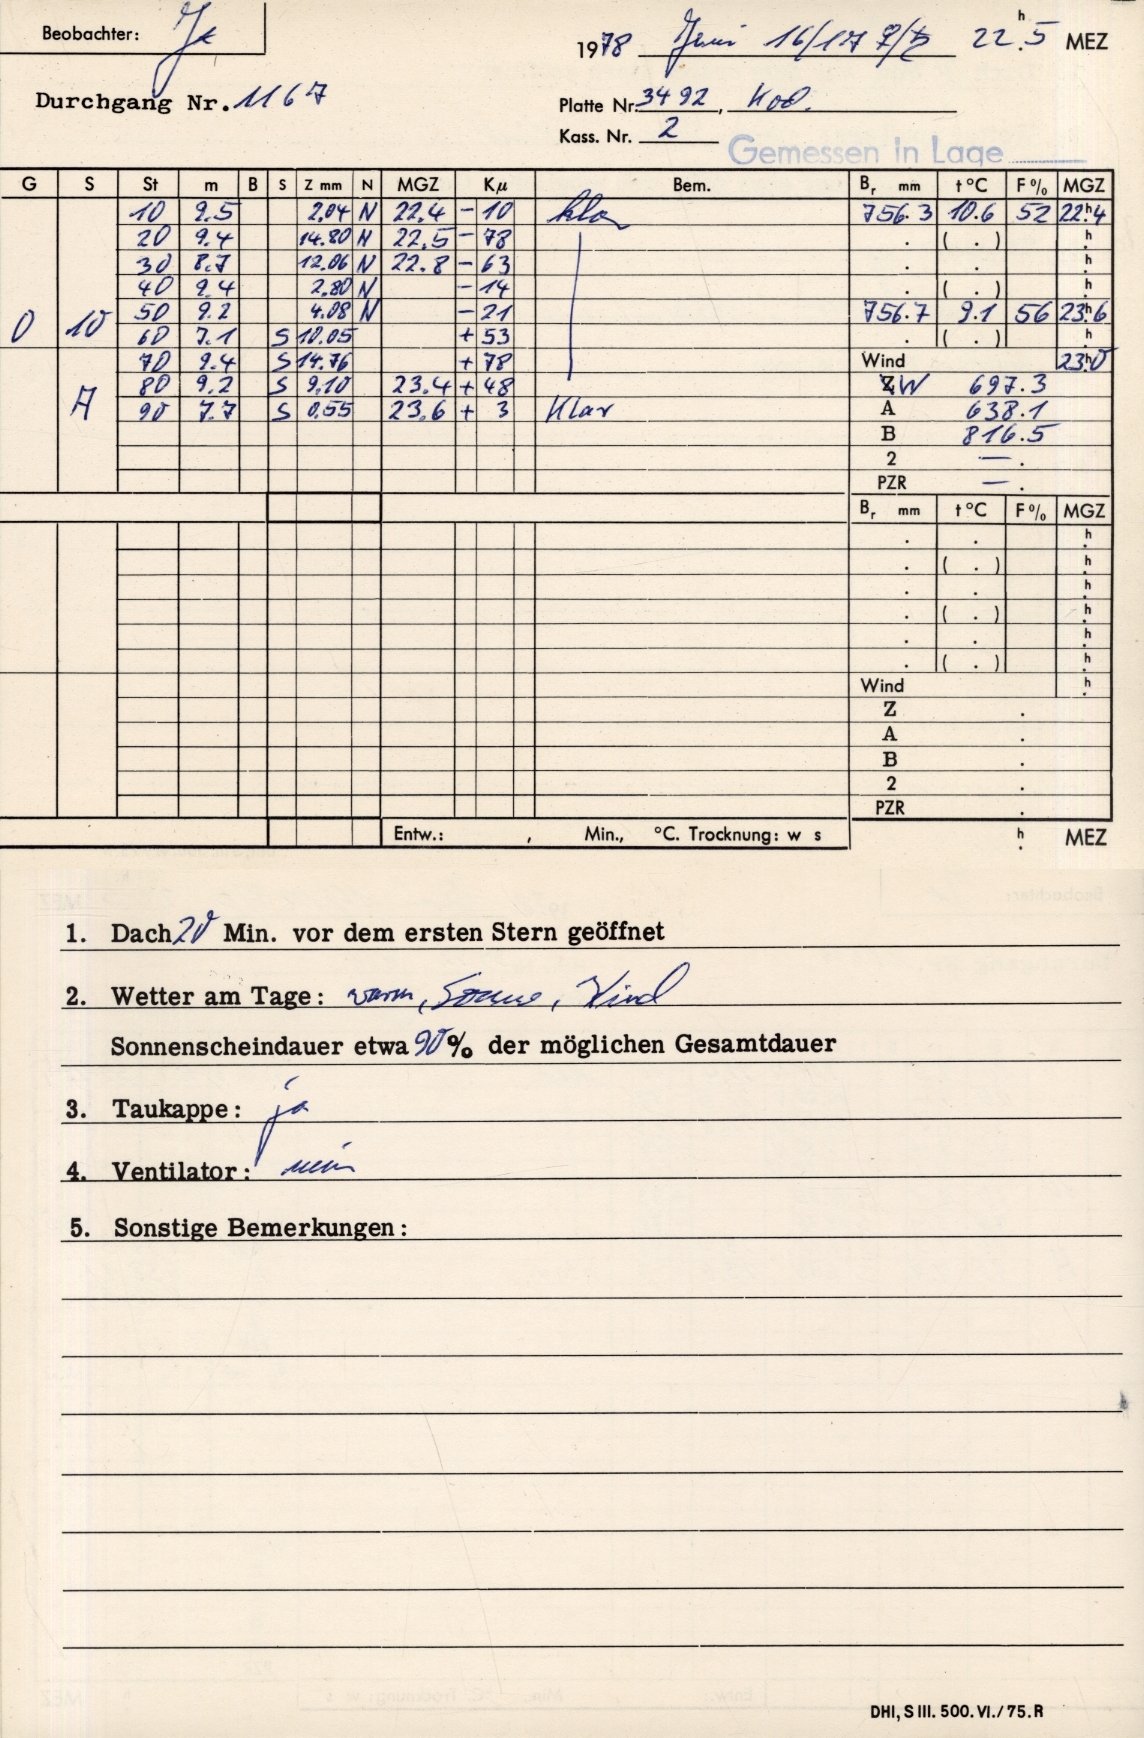 Beobachter: Je
1978 Juni 16/17 22.5 h MEZ
Durchgang Nr. 1167
Platte Nr. 3492, Kod.
Kass. Nr. 2
Gemessen in Lage
G S St m B S Z mm N MGZ Kμ Bem. Br mm t °C F % MGZ
10 9.5 2.04 N 22.4 - 10 klar 756.3 10.6 52 22h4
20 9.4 14.80 N 22.5 - 78 . ( . ) h.
30 8.7 12.06 N 22.8 - 63 . . h.
40 9.4 2.80 N - 14 . ( . ) h.
0 10 50 9.2 4.08 N - 21 756.7 9.1 56 23h6
60 7.1 S 10.05 + 53 . ( . ) h.
70 9.4 S 14.76 + 78 Wind 23h0
A 80 9.2 S 9.10 23.4 + 48 Z W 697.3
90 7.7 S 0.55 23.6 + 3 Klar A 638.1
B 816.5
2 — .
PZR — .
Br mm t °C F % MGZ
. . h.
. ( . ) h.
. . h.
. ( . ) h.
. . h.
. ( . ) h.
Wind h.
Z .
A .
B .
2 .
PZR .
Entw.: , Min., °C. Trocknung: w s h. MEZ
1. Dach 20 Min. vor dem ersten Stern geöffnet
2. Wetter am Tage: warm, Sonne, Wind
Sonnenscheindauer etwa 90 % der möglichen Gesamtdauer
3. Taukappe: ja
4. Ventilator: nein
5. Sonstige Bemerkungen:
DHI, S III. 500. VI./75. R